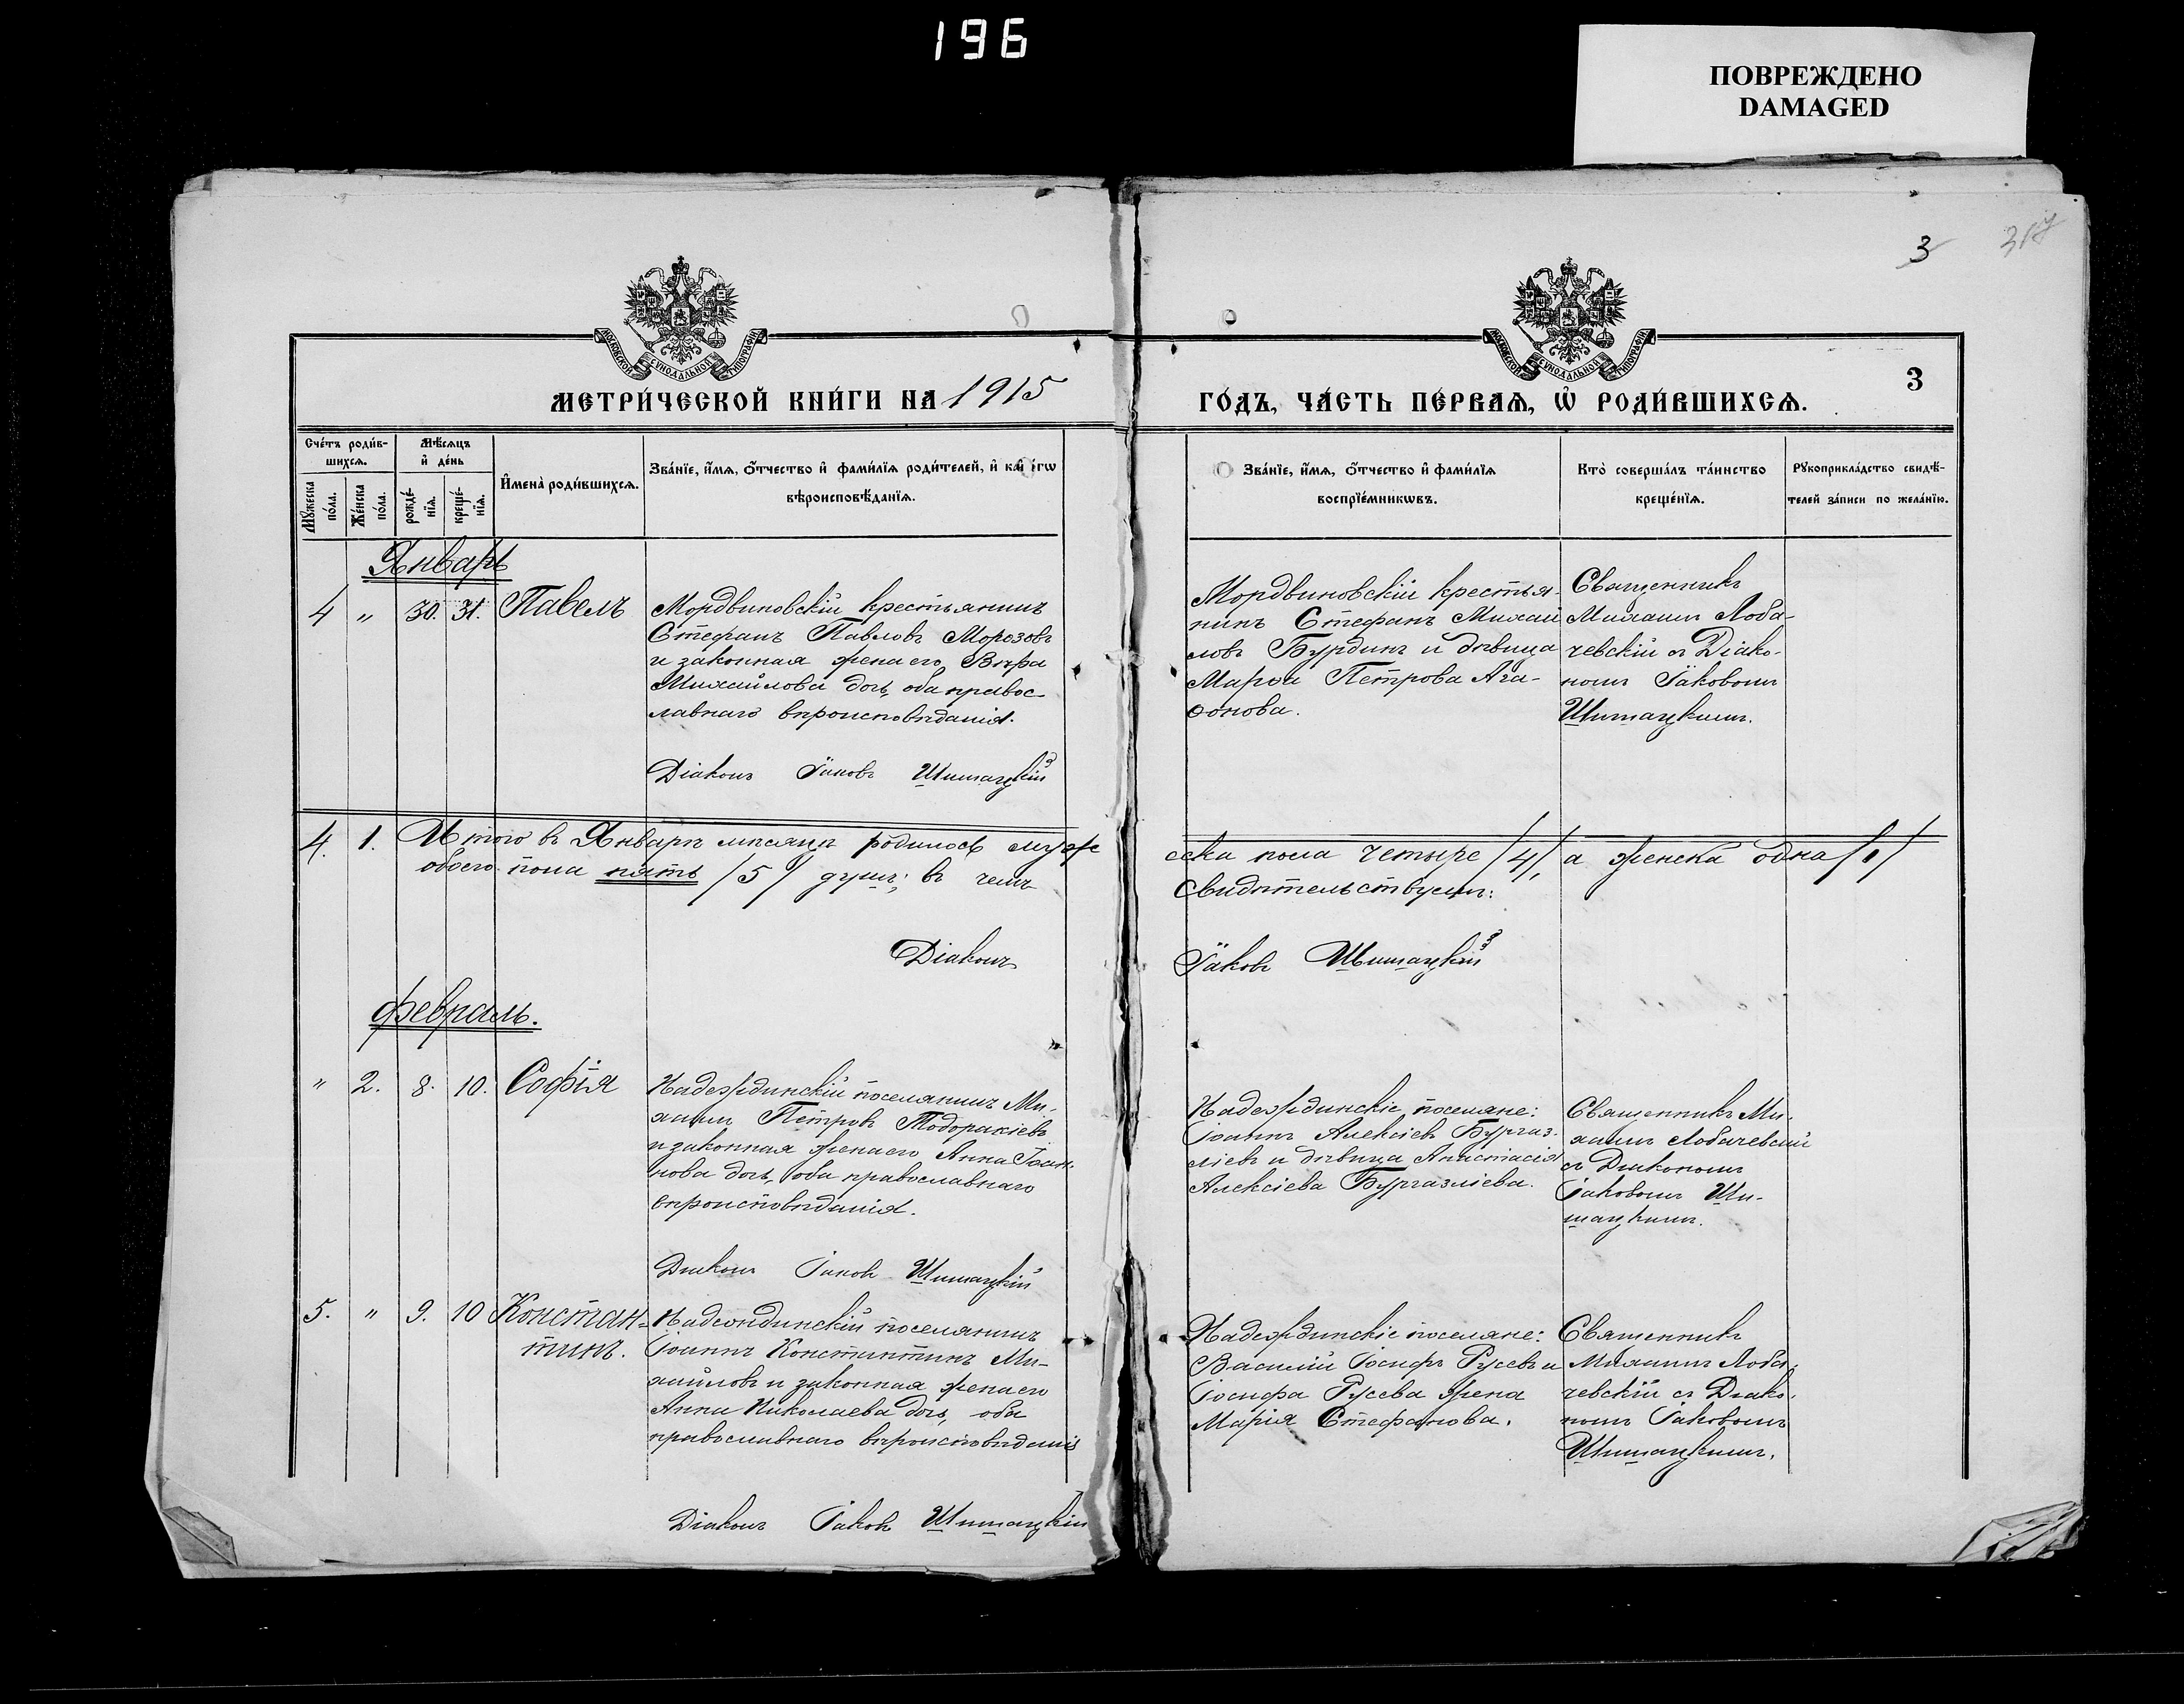 196
ПОВРЕЖДЕНО
DAMAGED
3
317
МОСКОВСКОЙ СѴНОДАЛЬНОЙ ТИПОГРАФІИ
МОСКОВСКОЙ СѴНОДАЛЬНОЙ ТИПОГРАФІИ
3
МЕТРИ́ЧЕСКОЙ КНИ́ГИ НА 1915
ГО́ДЪ, ЧА́СТЬ ПЕ́РВАѦ, Ѡ҆ РОДИ́ВШИХСѦ.
Сче́тъ роди́в-
шихсѧ.
Мѣ́сѧцъ
и҆ де́нь
Мꙋ́жеска
по́ла.
Же́нска
по́ла.
рожде́-
нїѧ.
креще́-
нїѧ.
И҆мена̀ роди́вшихсѧ.
Зва́нїе, и҆́мѧ, ѻ҆́тчество и҆ фами́лїѧ роди́телей, и҆ како́гѡ
вѣроисповѣ́данїѧ.
Зва́нїе, и҆́мѧ, ѻ҆́тчество и҆ фами́лїѧ
воспрїе́мникѡвъ.
Кто̀ соверша́лъ та́инство
креще́нїѧ.
Рꙋкоприкла́дство свидѣ́-
телей за́писи по жела́нїю.
Январь
4 " 30. 31. Павелъ
Мордвиновскій крестьянинъ
Стефанъ Павловъ Морозовъ
и законная жена его Вѣра
Михайлова дочь, оба правос-
лавнаго вѣроисповѣданія.
Діаконъ Іаковъ Шишацкій
Мордвиновскій крестья-
нинъ Стефанъ Михай
ловъ Бурдинъ и дѣвица
Марѳа Петрова Ага-
ѳонова.
Священникъ
Михаилъ Лоба-
чевскій съ Діако-
номъ Іаковомъ
Шишацкимъ.
4. 1. Итого въ Январѣ мѣсяцѣ родилось муже
ска пола четыре /4/, а женска одна /1/
обоего пола пять /5/ душъ; въ чемъ
свидѣтельствуемъ:
Діаконъ
Іаковъ Шишацкій
Февраль.
" 2. 8. 10. Софія
Надеждинскій поселянинъ Ми-
хаилъ Петровъ Тодоракіевъ
и законная жена его Анна Іоан-
нова дочь, оба православнаго
вѣроисповѣданія.
Діаконъ Іаковъ Шишацкій
Надеждинскіе поселяне:
Іоаннъ Алексіевъ Бургаз-
ліевъ и дѣвица Анастасія
Алексіева Бургазліева.
Священникъ Ми-
хаилъ Лобачевскій
съ Діакономъ
Іаковомъ Ши-
шацкимъ.
5. " 9. 10 Констан-
тинъ.
Надеждинскій поселянинъ
Іоаннъ Константинъ Ми-
хайловъ и законная жена его
Анна Николаева дочь, оба
православнаго вѣроисповѣданія
Діаконъ Іаковъ Шишацкій
Надеждинскіе поселяне:
Василій Іосифъ Русевъ и
Іосифа Русева жена
Марія Стефанова.
Священникъ
Михаилъ Лоба-
чевскій съ Діако-
номъ Іаковомъ
Шишацкимъ.